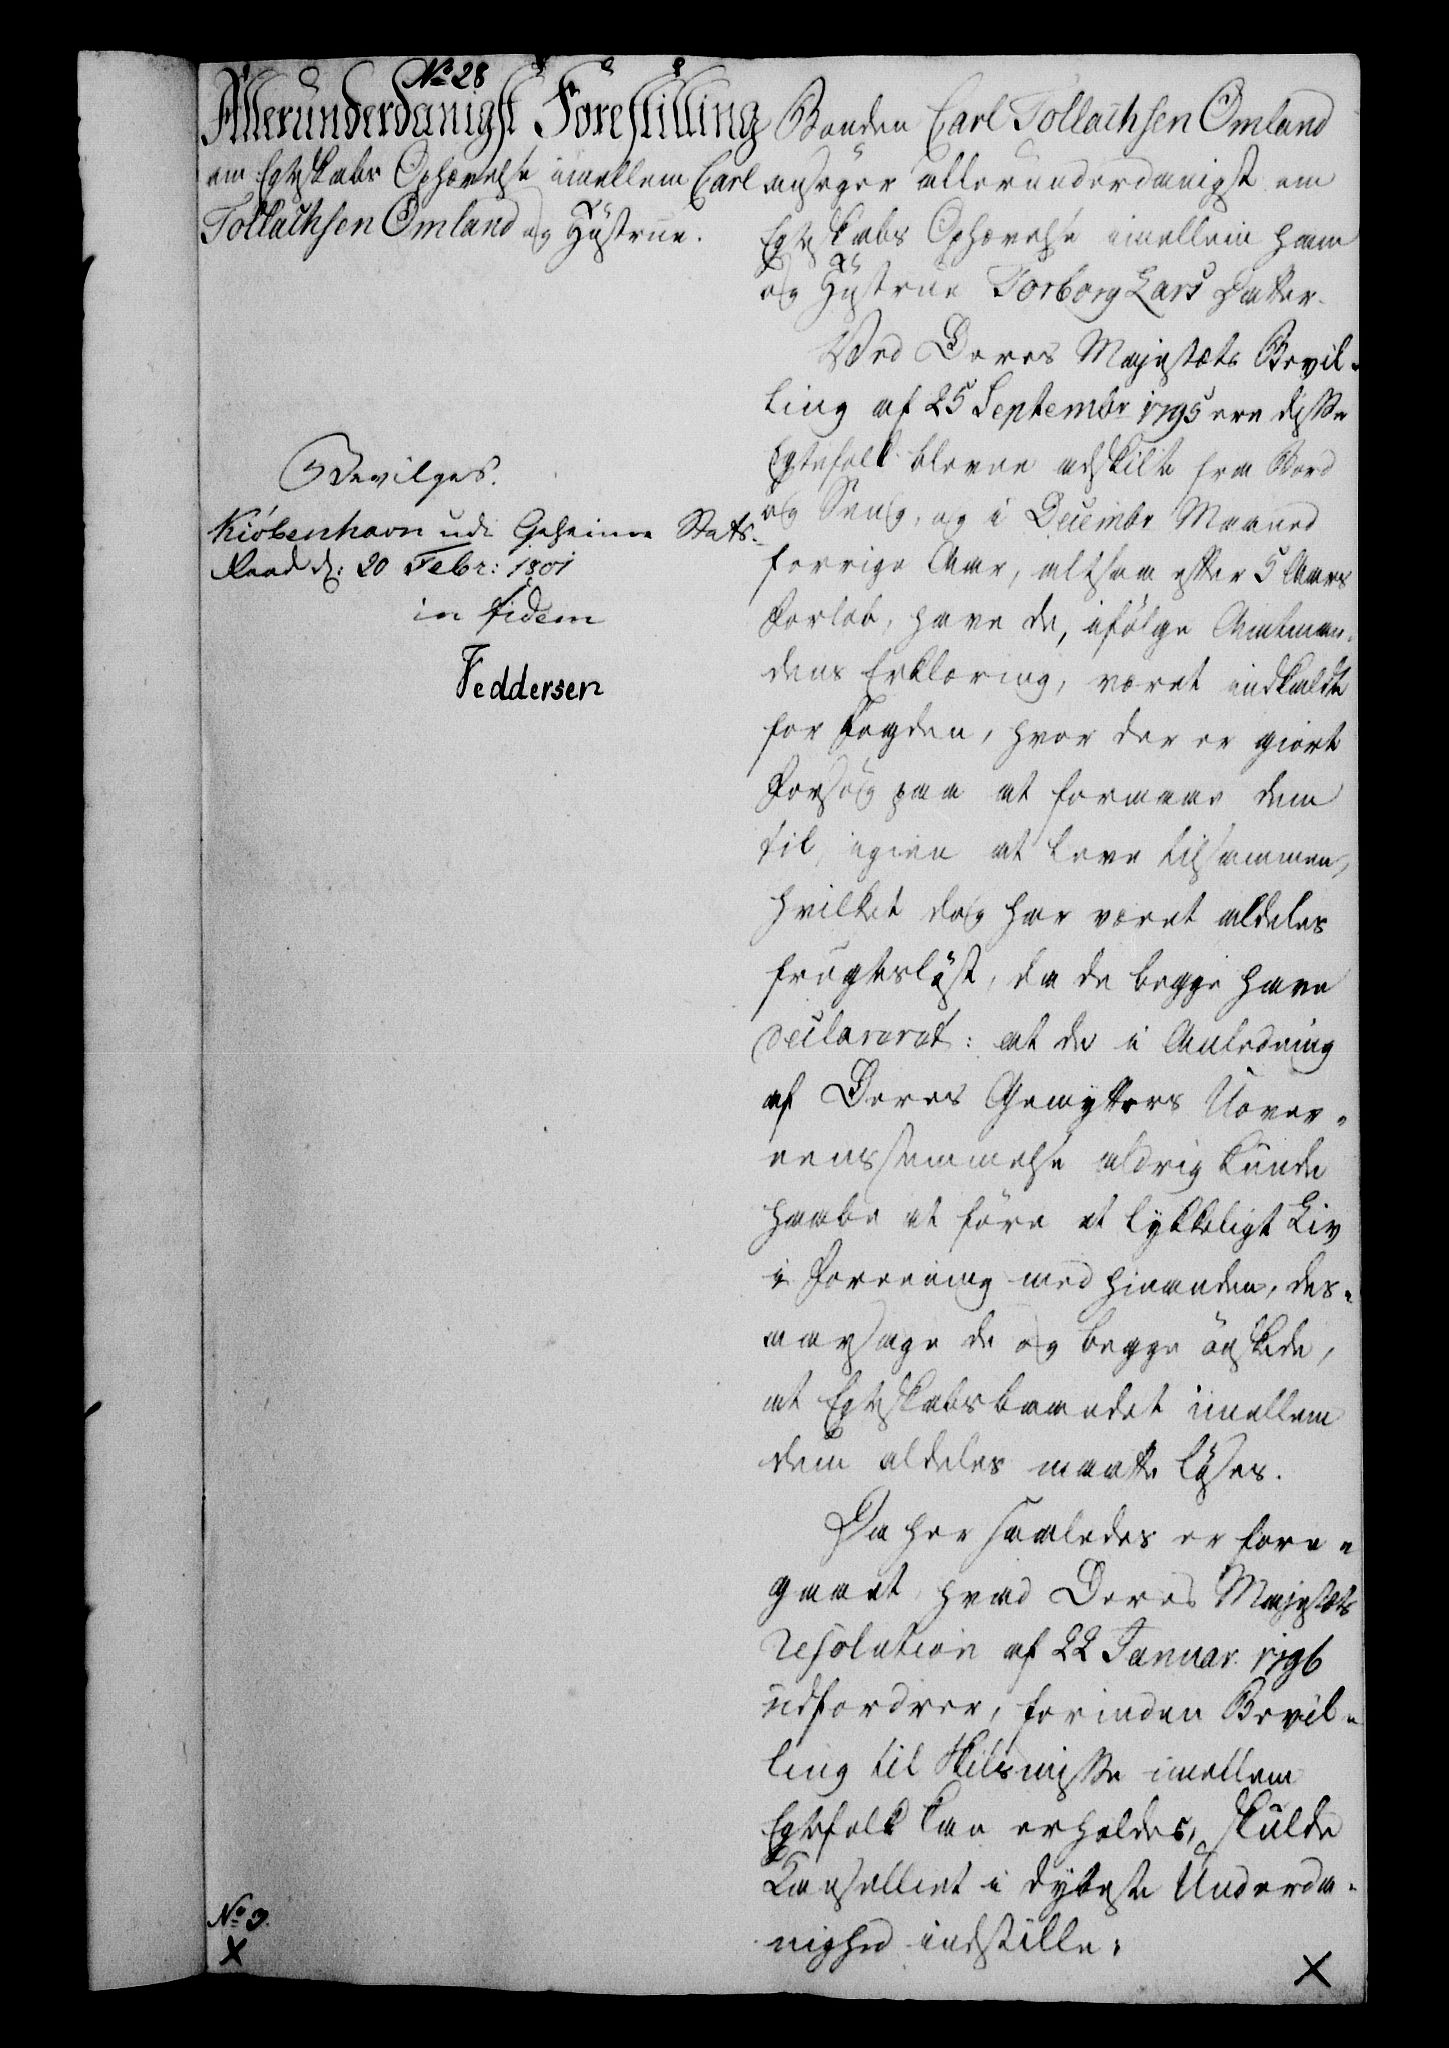 No 28
Allerunderdanigst Forestilling
om Egteskabs Ophævelse imellem Carl
Tollachsen Omland og Hustrue.
Bevilges.
Kiöbenhavn udi Geheime Stats-
Raad d: 20 Febr: 1801
in fidem
Feddersen
No 9.
X
Bonden Carl Tollachsen Omland
ansøger allerunderdanigst om
Egteskabs Ophævelse imellem ham
og Hustrue Torborg Lars Datter.
Ved Deres Majestæts Bevil-
ling af 25 Septembr 1795 ere disse
Egtefolk blevne adskilte fra Bord
og Seng, og i Decembr Maaned
forrige Aar, altsaa efter 5 Aars
Forløb, have de, ifölge Amtman-
dens Erklæring, været indkaldte
for Fogden, hvor der er giort
Forsög paa at formaae dem
til igien at leve tilsammen,
hvilket dog har været aldeles
frugteslöst, da de begge have
declareret: at de i Anledning
af Deres Gemytters Uover-
eensstemmelse aldrig kunde
haabe at före et lykkeligt Liv
i Forening med hinanden, des-
aarsage de og begge önskede,
at Egteskabsbaandet imellem
dem aldeles maatte löses.
Da her saaledes er fore-
gaaet, hvad Deres Majestæts
Resolution af 22 Januar 1796
udfordrer, forinden Bevil-
ling til Skilsmisse imellem
Egtefolk kan erholdes, skulde
Kanselliet i dybeste Underda-
nighed indstille:
X